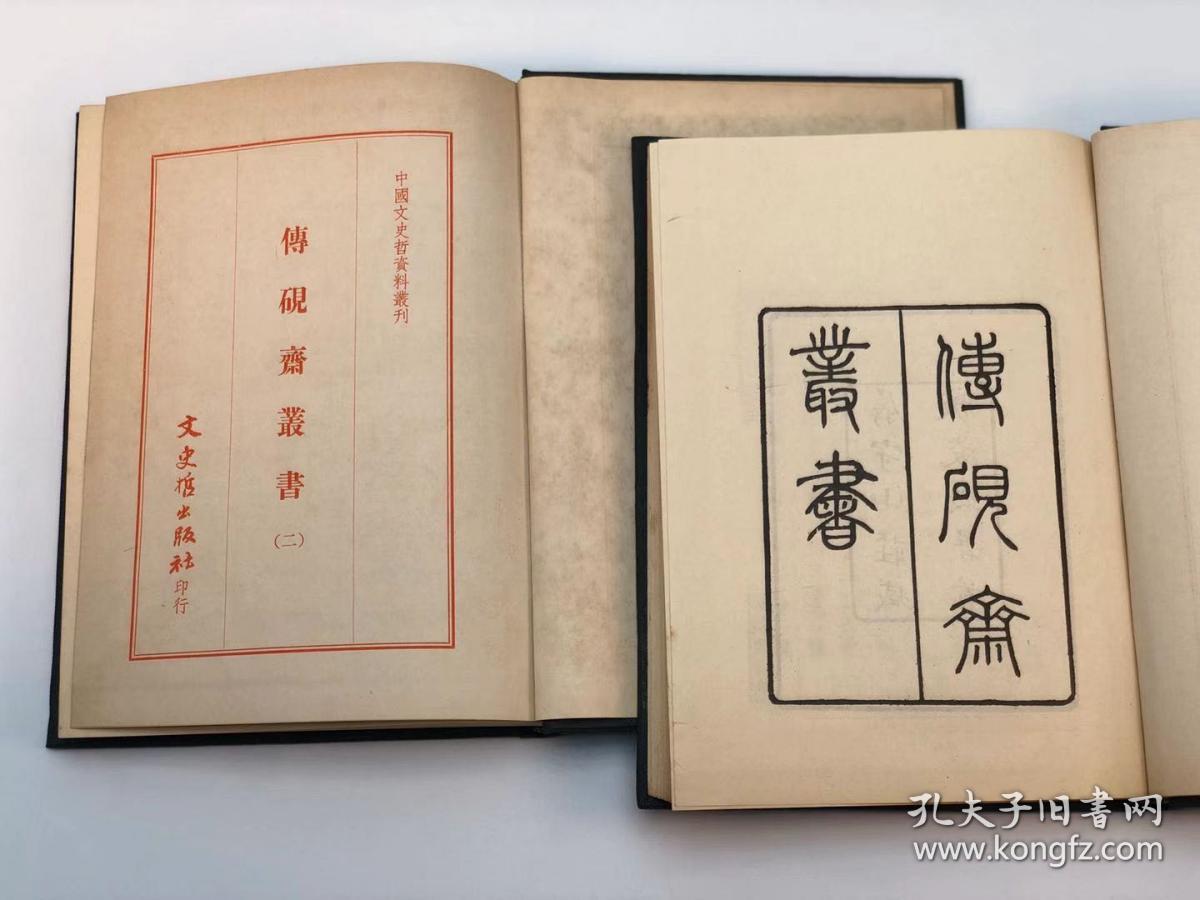 中國文史哲資料叢刊
傳硯齋叢書
（二）
文史哲出版社印行
傳硯齋
叢書
孔夫子旧书网
www.kongfz.com